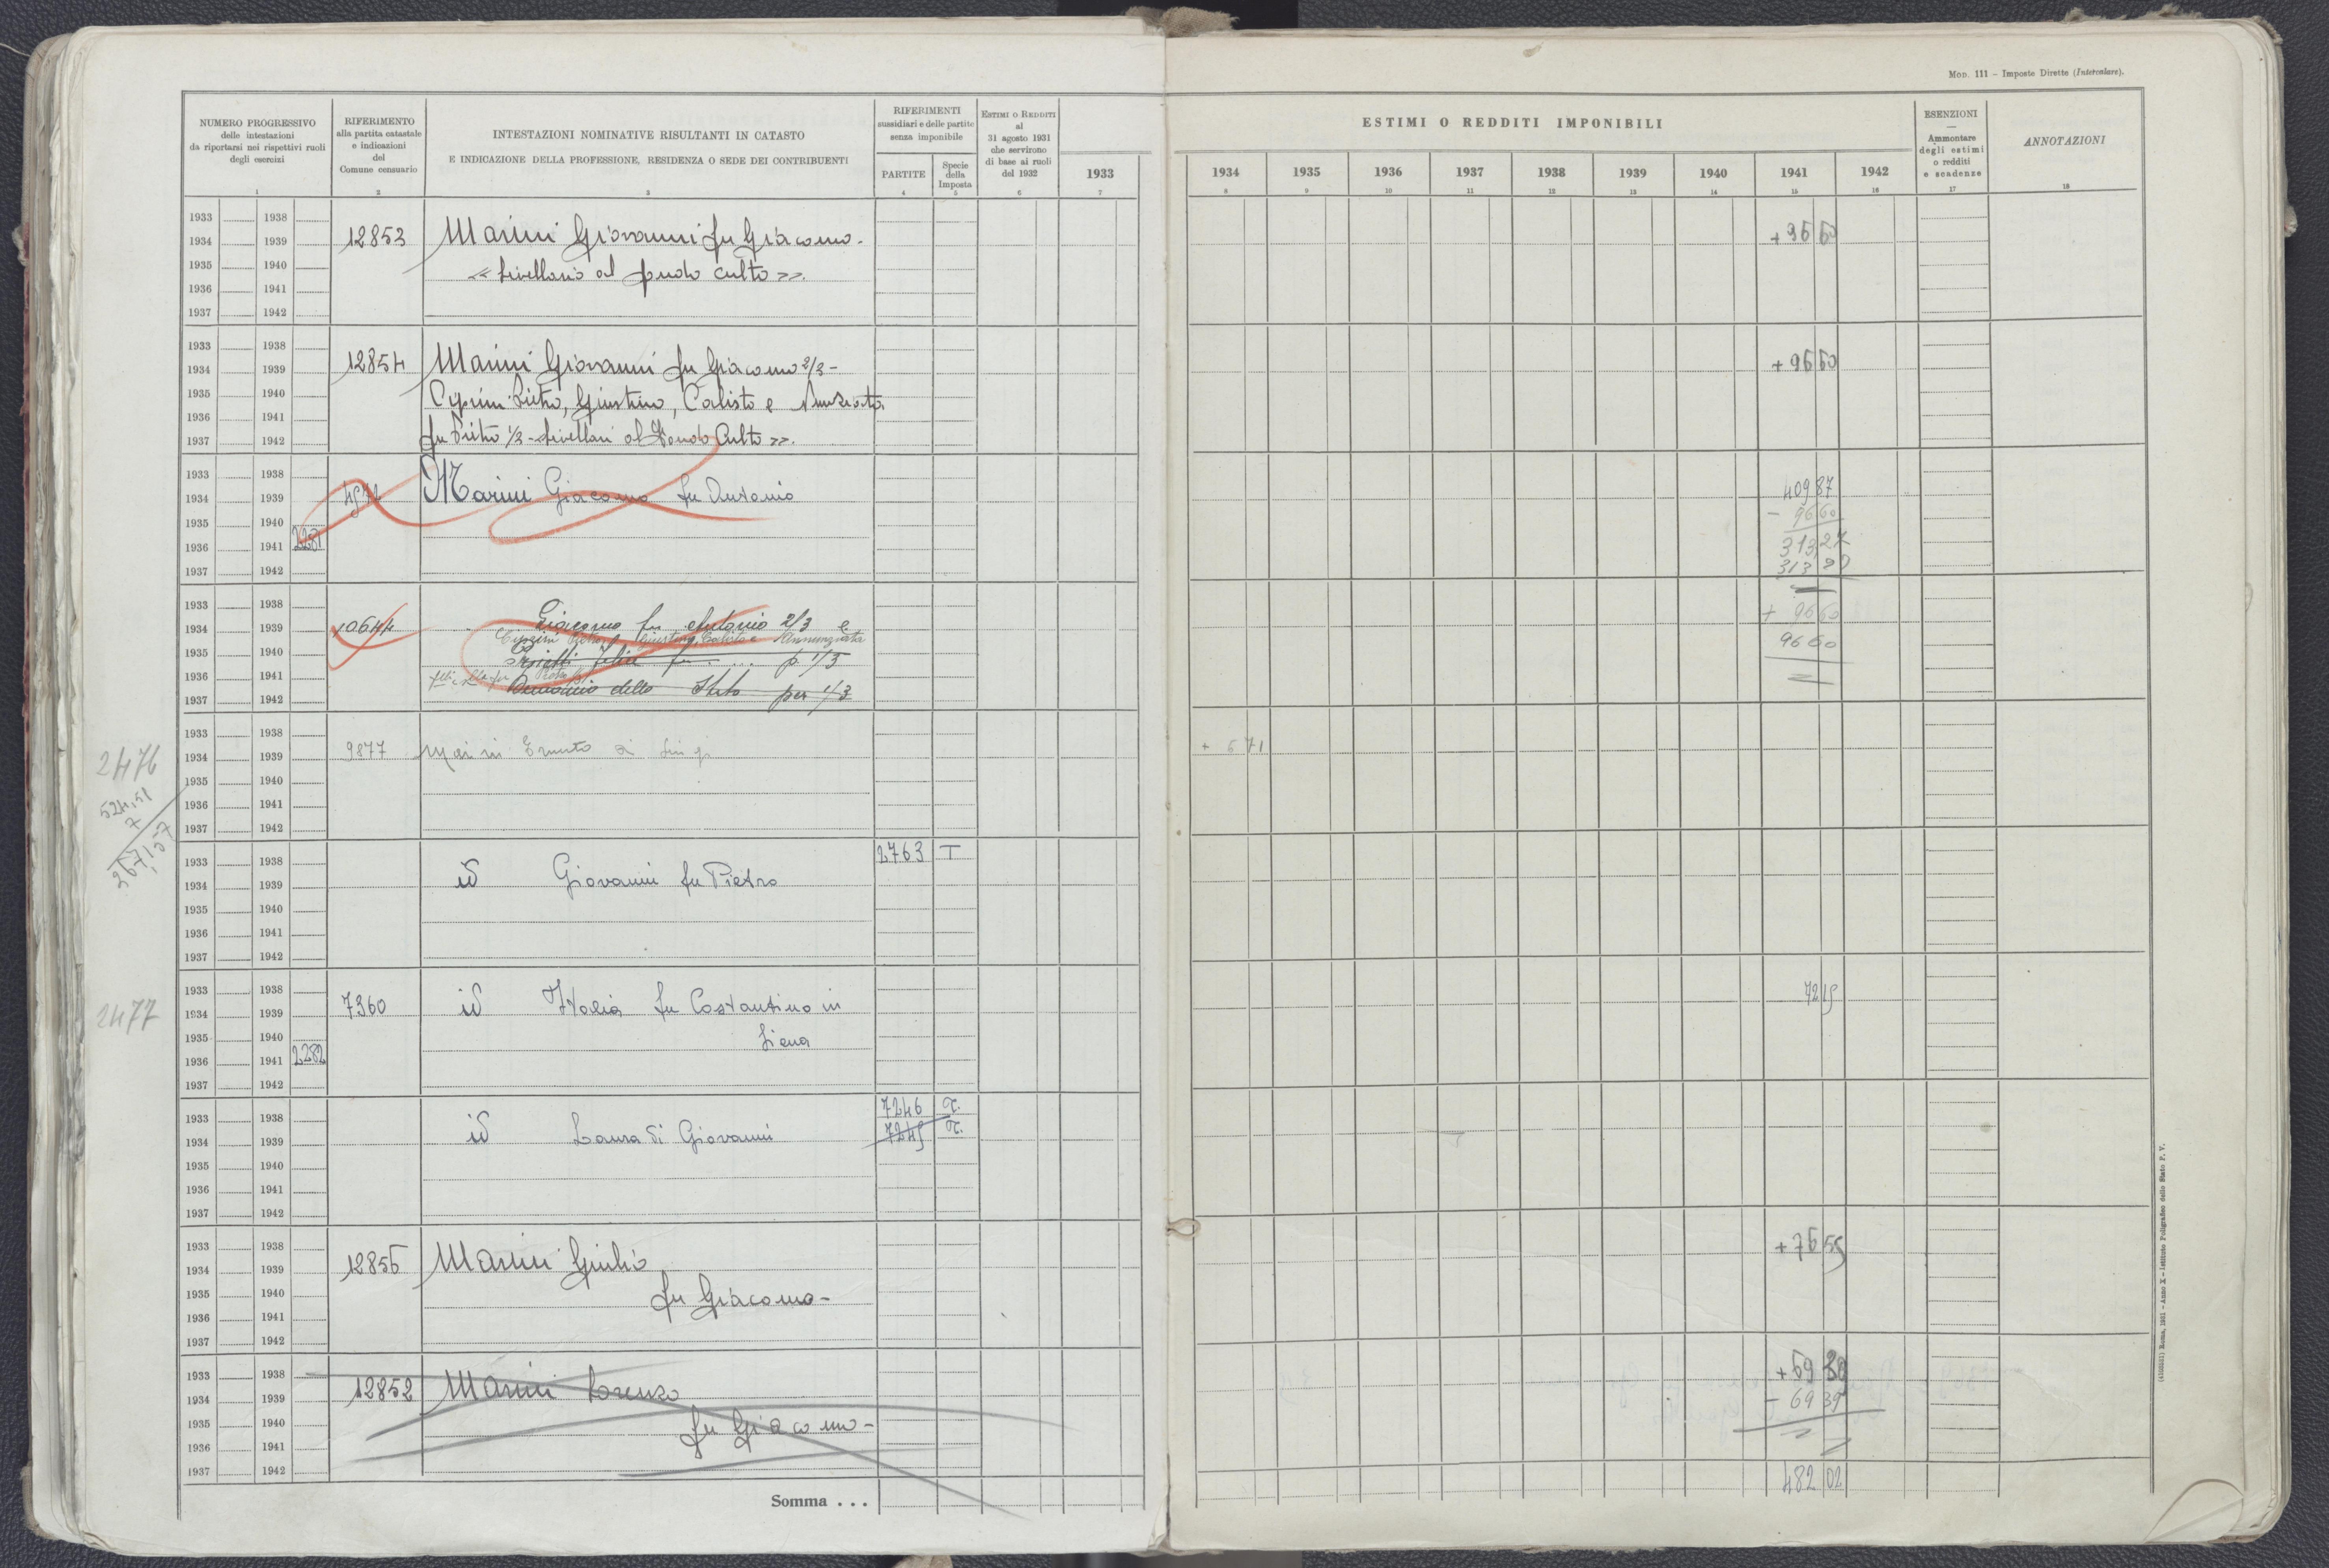 Mod. 111 - Imposte Dirette (Intercalare).
NUMERO PROGRESSIVO
delle intestazioni
da riportarsi nei rispettivi ruoli
degli esercizi
1
RIFERIMENTO
alla partita catastale
e indicazioni
del
Comune censuario
2
INTESTAZIONI NOMINATIVE RISULTANTI IN CATASTO
E INDICAZIONE DELLA PROFESSIONE, RESIDENZA O SEDE DEI CONTRIBUENTI
3
RIFERIMENTI
sussidiari e delle partite
senza imponibile
PARTITE
4
Specie
della
Imposta
5
ESTIMI O REDDITI
al
31 agosto 1931
che servirono
di base ai ruoli
del 1932
6
ESTIMI O REDDITI IMPONIBILI
1933 1934 1935 1936 1937 1938 1939 1940 1941 1942
7 8 9 10 11 12 13 14 15 16
ESENZIONI
—
Ammontare
degli estimi
o redditi
e scadenze
17
ANNOTAZIONI
18
1933 1938
1934 1939 12853 Marini Giovanni fu Giacomo - + 96 60
1935 1940 « livellario al fondo culto ».
1936 1941
1937 1942
1933 1938
1934 1939 12854 Marini Giovanni fu Giacomo 2/3 - + 96 60
1935 1940 Pietro, Giustino, Calisto e Nunziata
1936 1941
1937 1942 fu Pietro 1/3 - livellari al Fondo Culto ».
1933 1938
1934 1939 Marini Giacomo fu Antonio 409 87
1935 1940 - 96 60
1936 1941 2281 313,27
1937 1942 313 27
1933 1938 + 96 60
1934 1939 10644 Giacomo fu Antonio 2/3 e 96 60
Pietro, Giustino, Calisto e Annunziata
1935 1940 Felice fu .... p. 1/3
1936 1941
1937 1942 Demanio dello Stato per 1/3
2476
1933 1938
1934 1939 9877 Marini Ernesto di Luigi + 6 71
1935 1940
1936 1941
1937 1942
524,51
267,57
1933 1938 2763 T
1934 1939 id Giovanni fu Pietro
1935 1940
1936 1941
1937 1942
2477
1933 1938 72 15
1934 1939 7360 id Italia fu Costantino in
1935 1940 Siena
1936 1941 2282
1937 1942
1933 1938 7246 T.
1934 1939 id Laura di Giovanni 7245 T.
1935 1940
1936 1941
1937 1942
1933 1938 + 76 55
1934 1939 12855 Marini Giulio
1935 1940 fu Giacomo -
1936 1941
1937 1942
1933 1938 + 69 39
1934 1939 12852 Marini Lorenzo - 69 39
1935 1940 fu Giacomo -
1936 1941
1937 1942
Somma . . . 482 02
(4100531) Roma, 1931 - Anno X - Istituto Poligrafico dello Stato P. V.